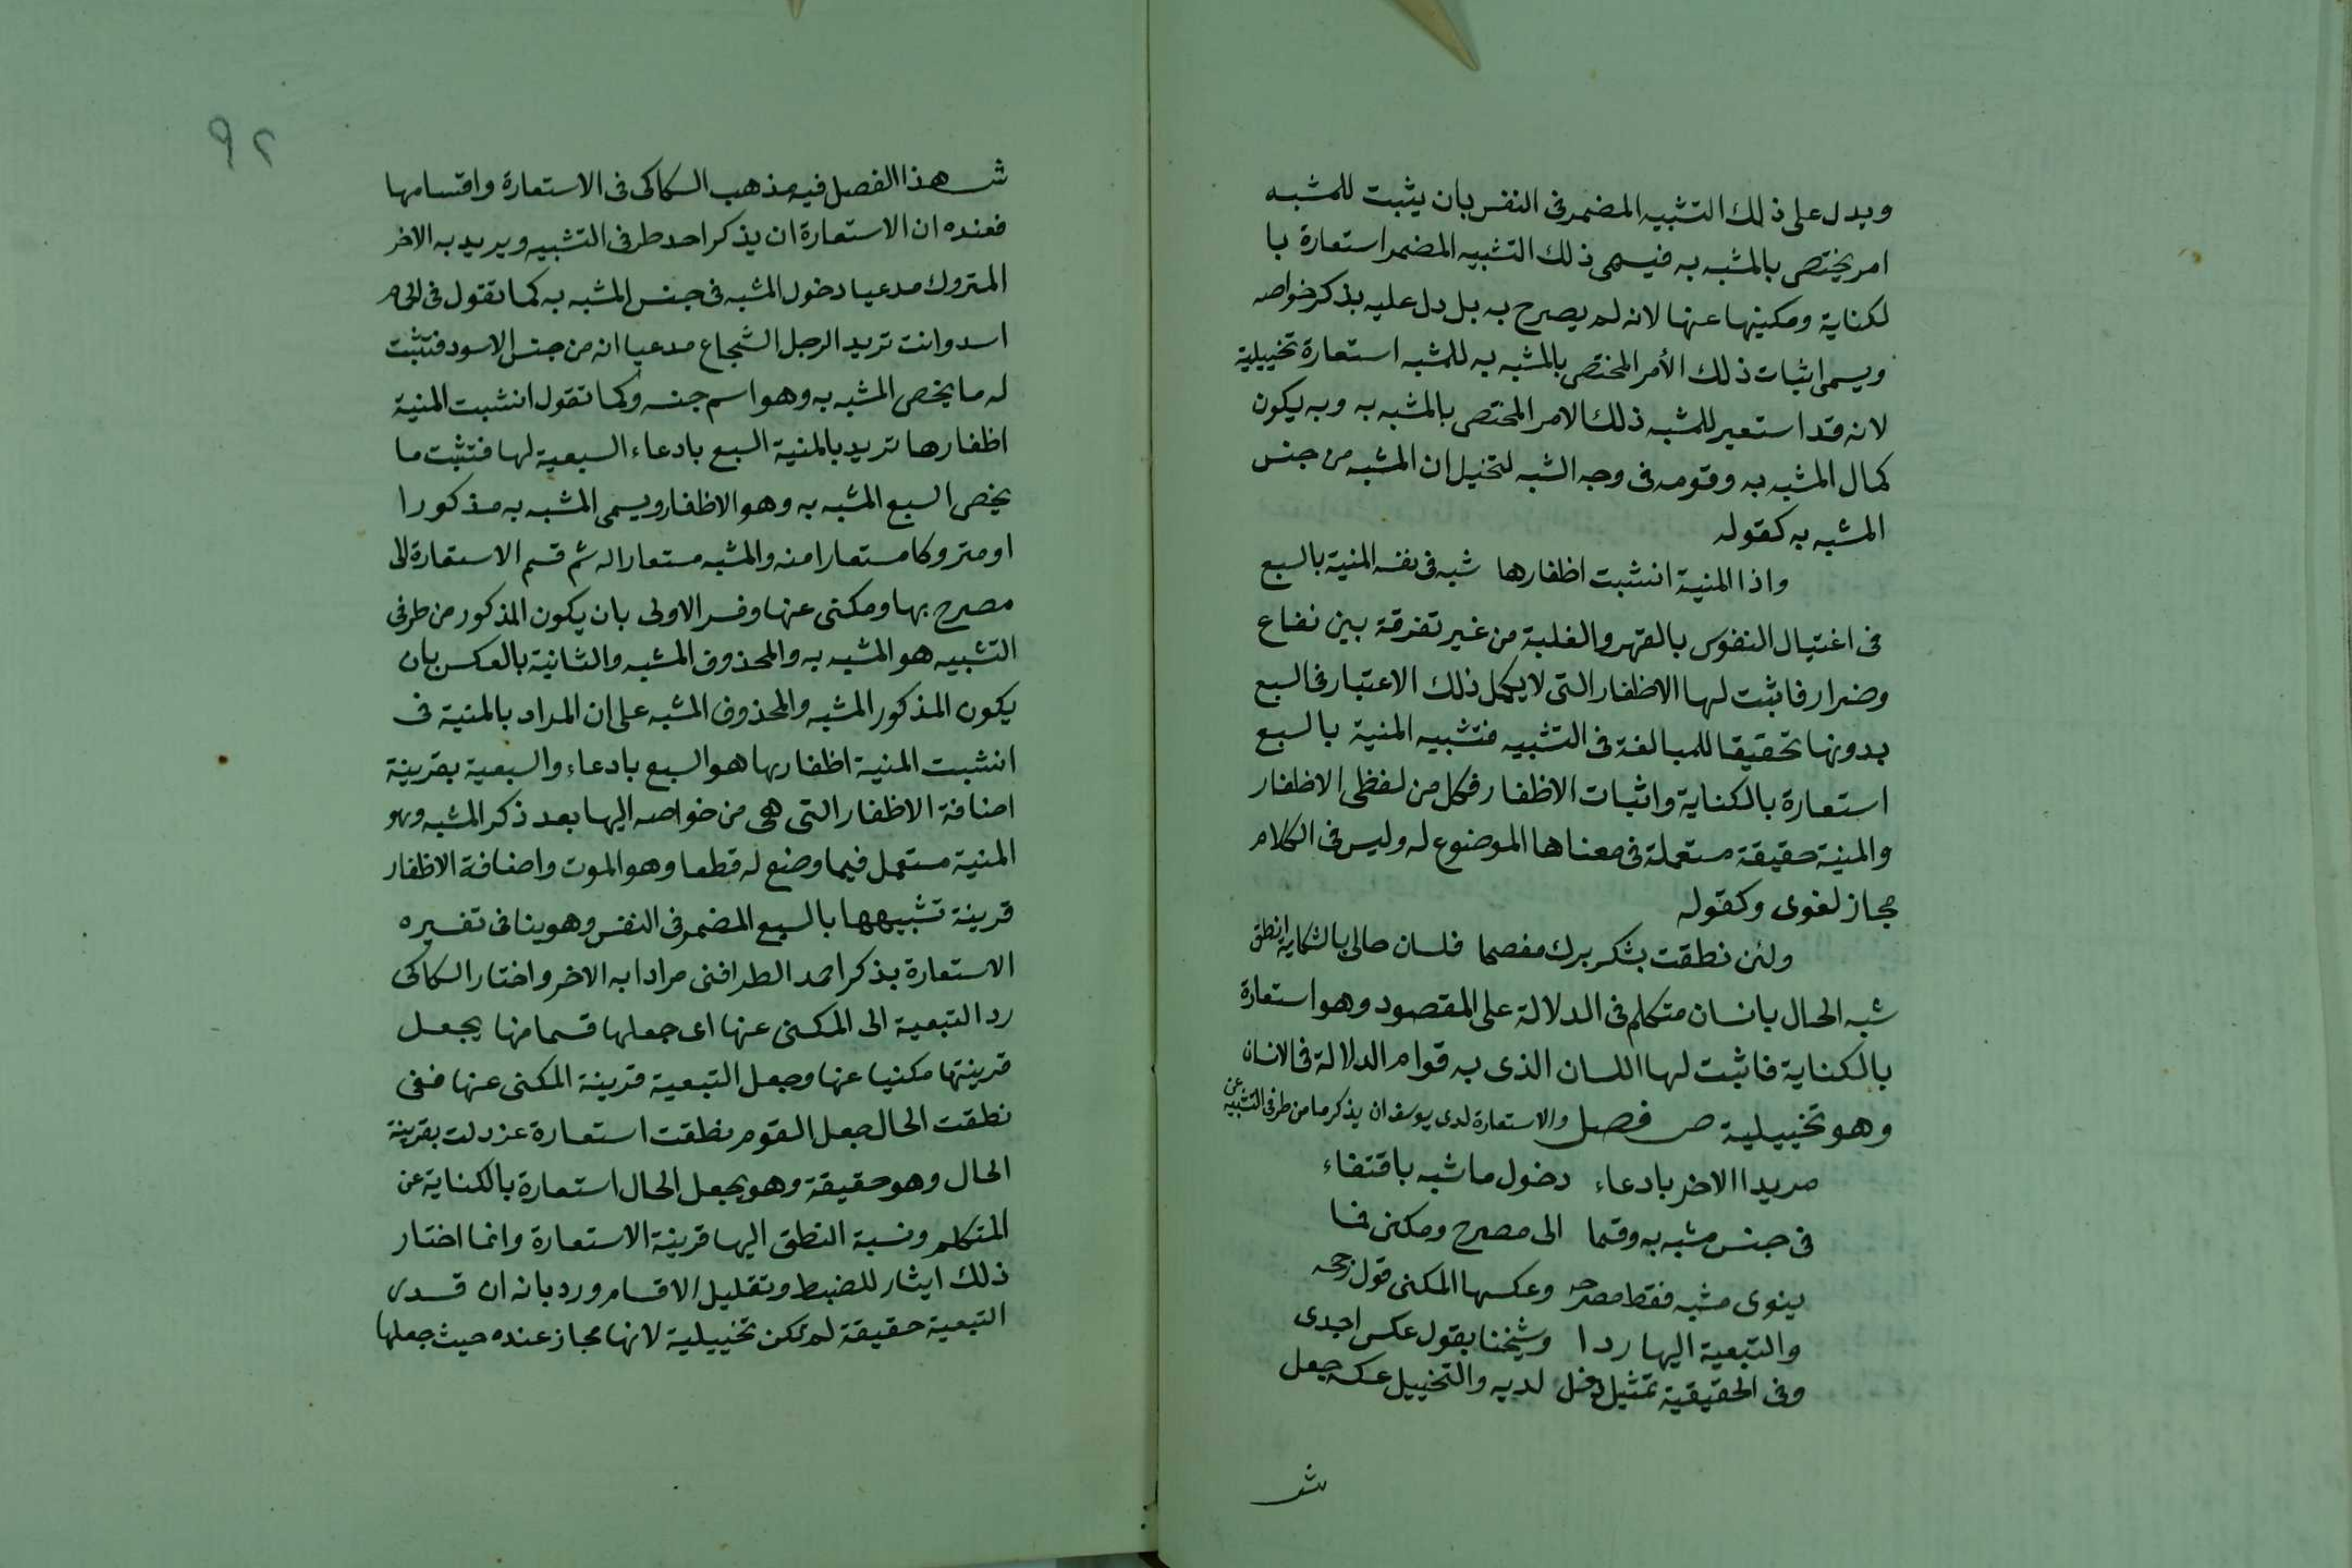 ويدل على ذلك التشبيه المضمر فى النفس بان يثبت للمشبه
امر يختص بالمشبه به فيسمى ذلك التشبيه المضمر استعارة با
لكناية ومكنيها عنها لانه لم يصرح به بل دل عليه بذكر خواصه
ويسمى اثبات ذلك الأمر المختص بالمشبه به للمشبه استعارة تخييلية
لانه قد استعير للمشبه ذلك الامر المختص بالمشبه به وبه يكون
كمال المشبه به وقومه فى وجه الشبه لتخيل ان المشبه من جنس
المشبه به كقوله
واذا المنية انشبت اظفارها شبه فى نفسه المنية بالسبع
فى اغتيال النفوس بالقهر والغلبة من غير تفرقة بين نفاع
وضرار فاثبت لها الاظفار التى لا يكمل ذلك الاعتبار فى السبع
بدونها تحقيقا للمبالغة فى التشبيه فتشبيه المنية بالسبع
استعارة بالكناية واثبات الاظفار فكل من لفظى الاظفار
والمنية حقيقة مستعملة فى معناها الموضوع له وليس فى الكلام
مجاز لغوى وكقوله
ولئن نطقت بشكر برك مفصحا فلسان حالى بالشكاية انطق
شبه الحال بانسان متكلم فى الدلالة على المقصود وهو استعارة
بالكناية فاثبت لها اللسان الذى به قوام الدلالة فى الانسان
وهو تخييلية ص فصل والاستعارة لدى يوسف ان يذكر ما من طرفى التشبيه عن
مريدا الاخر بادعاء دخول ما شبه باقتفاء
فى جنس مشبه به وقسما الى مصرح ومكنى فما
ينوى مشبه فقط مصرحه وعكسها المكنى قول رجحه
والتبعية اليها ردا وشيخنا يقول عكس اجدى
وفى الحقيقية تمثيل دخل لديه والتخييل عكسه جعل
ش
٩٢
ش هذا الفصل فيه مذهب السكاكى فى الاستعارة واقسامها
فعنده ان الاستعارة ان يذكر احد طرفى التشبيه ويريد به الاخر
المتروك مدعيا دخول المشبه فى جنس المشبه به كما تقول فى الحمام
اسد وانت تريد الرجل الشجاع مدعيا انه من جنس الاسود فتثبت
له ما يخص المشبه به وهو اسم جنسه وكما تقول انشبت المنية
اظفارها تريد بالمنية السبع بادعاء السبعية لها فتثبت ما
يخص السبع المشبه به وهو الاظفار ويسمى المشبه به مذكورا
او متروكا مستعارا منه والمشبه مستعارا له ثم قسم الاستعارة الى
مصرح بها ومكنى عنها وفسر الاولى بان يكون المذكور من طرفى
التشبيه هو المشبه به والمحذوف المشبه والثانية بالعكس بان
يكون المذكور المشبه والمحذوف المشبه على ان المراد بالمنية فى
انشبت المنية اظفارها هو السبع بادعاء والسبعية بقرينة
اضافة الاظفار التى هى من خواصه اليها بعد ذكر المشبه وهو
المنية مستعمل فيما وضع له قطعا وهو الموت واضافة الاظفار
قرينة تشبيهها بالسبع المضمر فى النفس وهو ينافى تفسيره
الاستعارة بذكر احد الطرافنى مرادا به الاخر واختار السكاكى
رد التبعية الى المكنى عنها اى جعلها قسما منها يجعل
قرينتها مكنيا عنها وجعل التبعية قرينة المكنى عنها ففى
نطقت الحال جعل القوم نطقت استعارة عن دلت بقرينة
الحال وهو حقيقة وهو يجعل الحال استعارة بالكناية عن
المتكلم ونسبة النطق اليها قرينة الاستعارة وانما اختار
ذلك ايثار للضبط وتقليل الاقسام ورد بانه ان قدر
التبعية حقيقة لم تكن تخييلية لانها مجاز عنده حيث جعلها